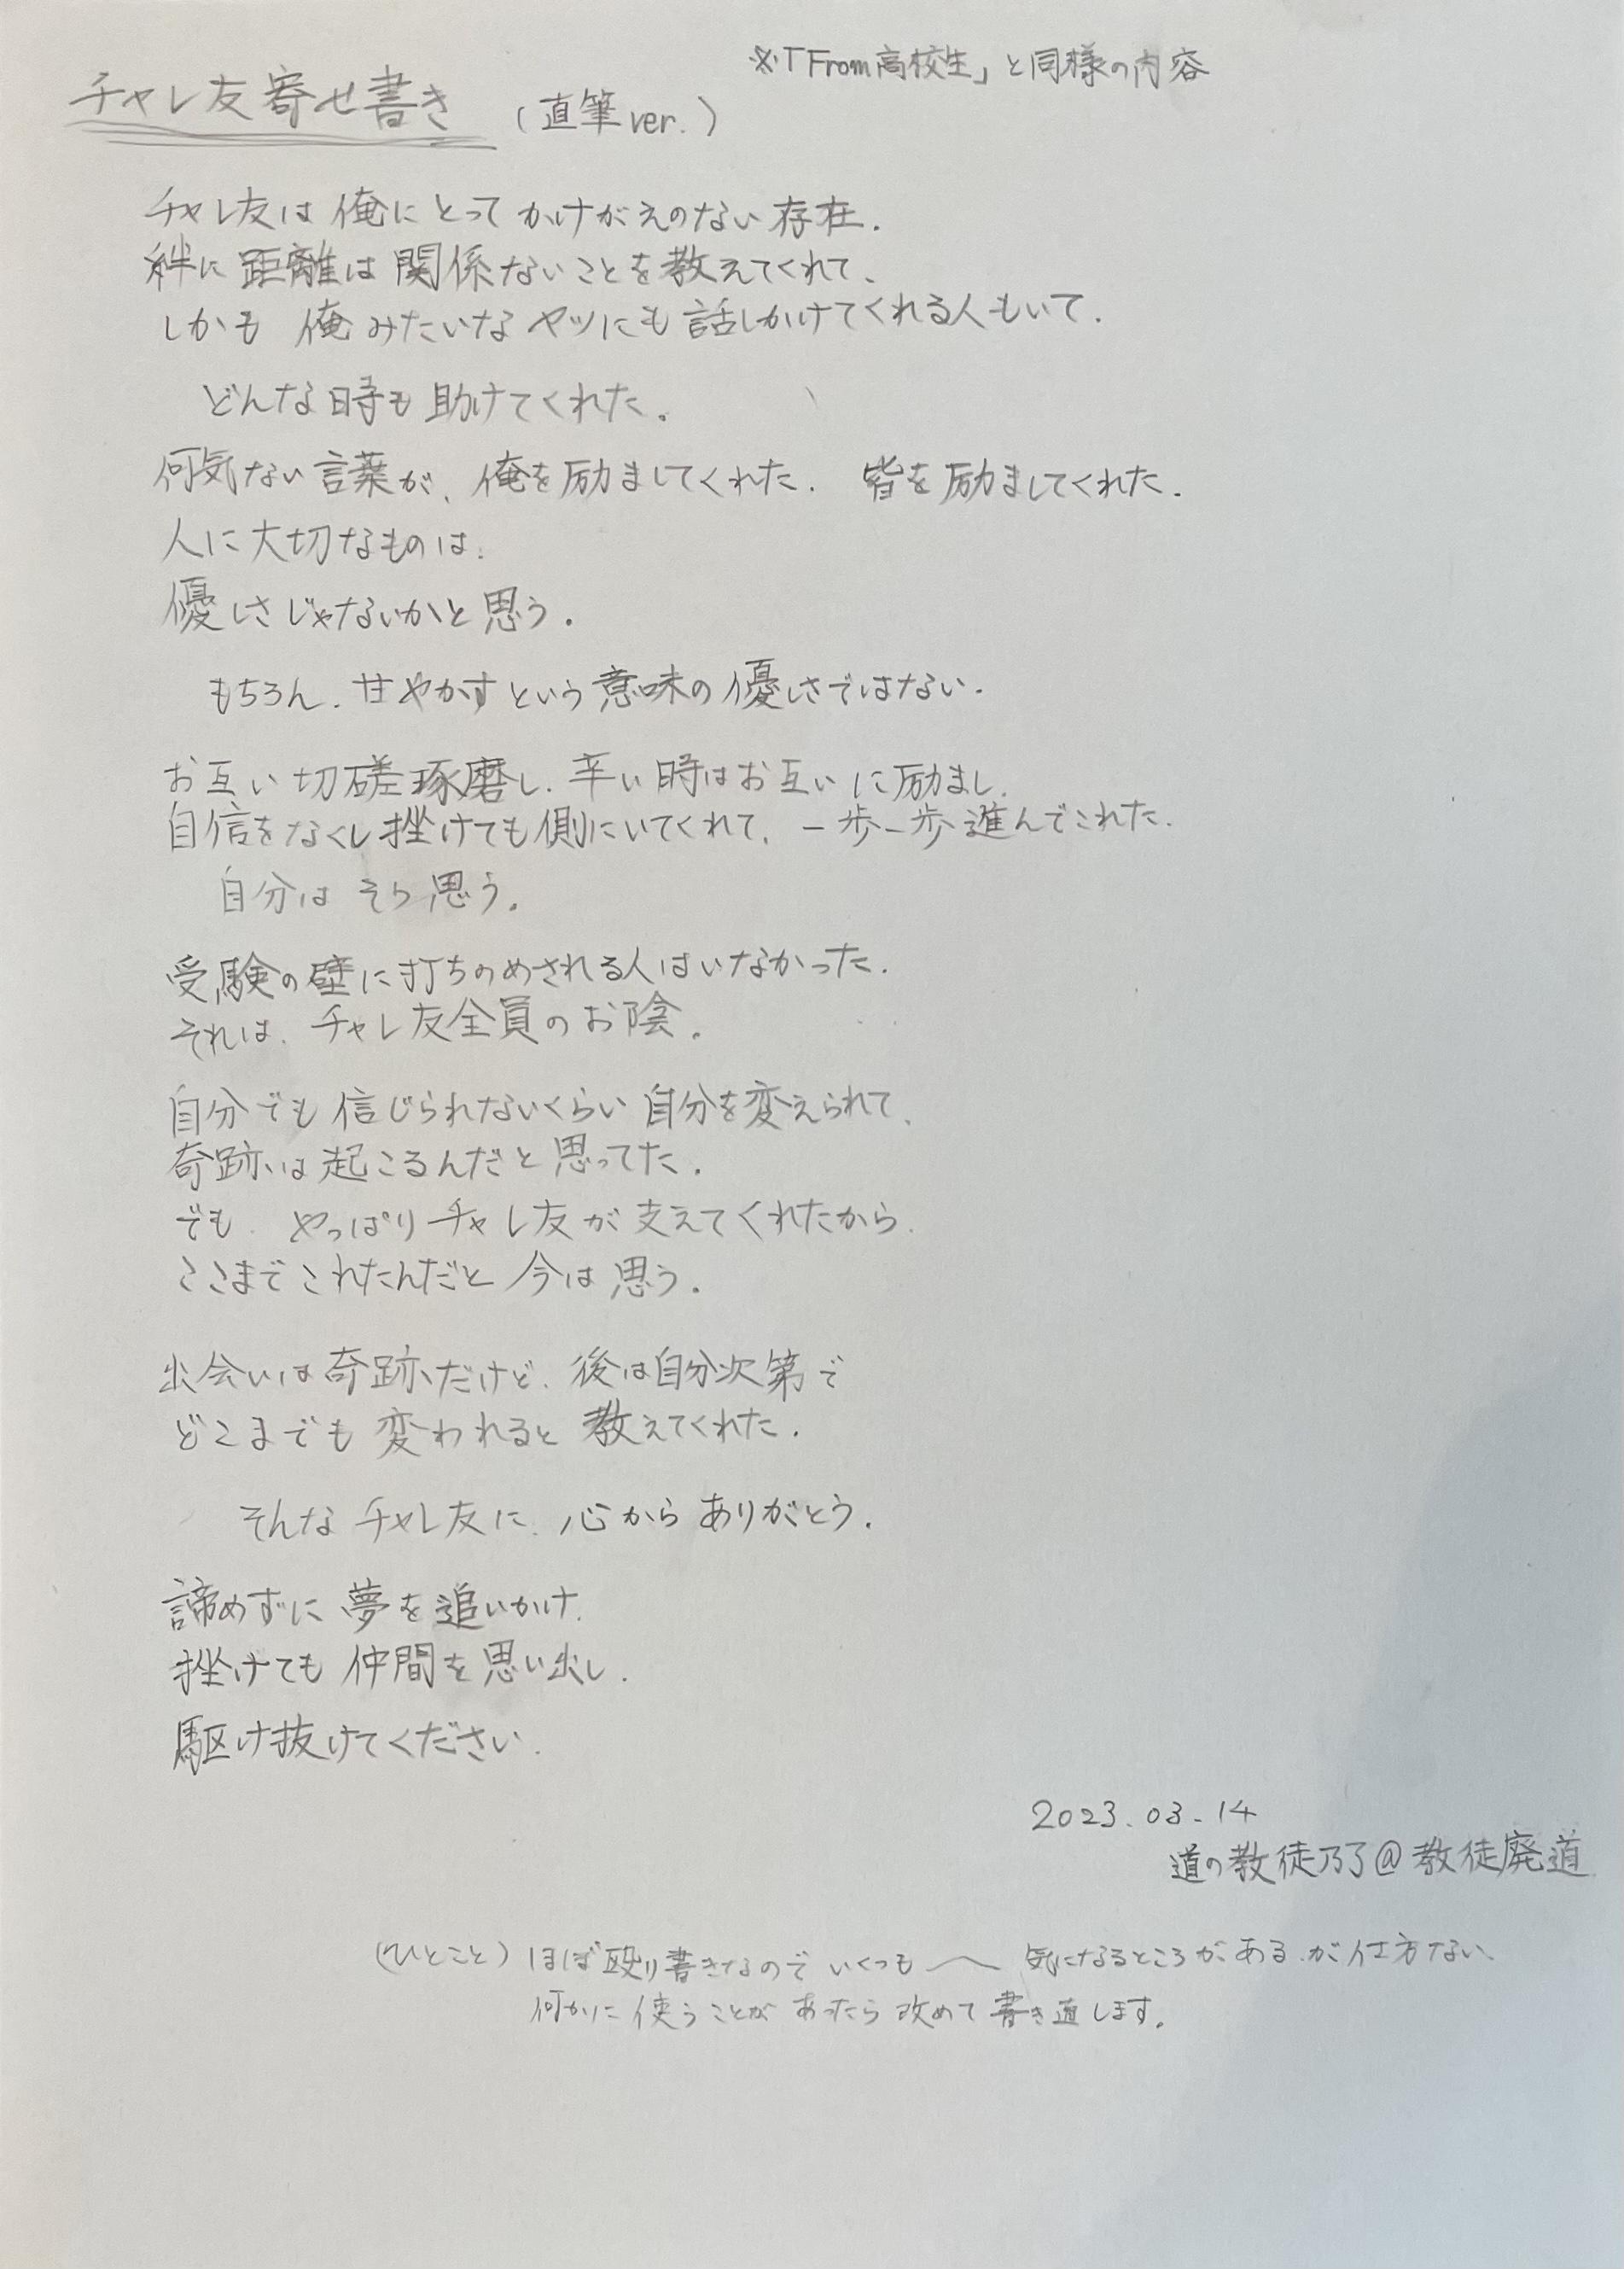 ※「From高校生」と同様の内容
チャレ友寄せ書き (直筆ver.)
チャレ友は俺にとってかけがえのない存在.
絆に距離は関係ないことを教えてくれて、
しかも 俺みたいなヤツにも話しかけてくれる人もいて.
どんな時も助けてくれた.
何気ない言葉が、俺を励ましてくれた. 皆を励ましてくれた.
人に大切なものは.
優しさじゃないかと思う.
もちろん.甘やかすという意味の優しさではない.
お互い切磋琢磨し.辛い時はお互いに励まし.
自信をなくし挫けても側にいてくれて.一歩一歩進んでこれた.
自分はそう思う.
受験の壁に打ちのめされる人はいなかった.
それは.チャレ友全員のお陰.
自分でも信じられないくらい自分を変えられて、
奇跡は起こるんだと思ってた.
でも.やっぱりチャレ友が支えてくれたから.
ここまでこれたんだと今は思う.
出会いは奇跡だけど.後は自分次第で
どこまでも変われると教えてくれた.
そんなチャレ友に.心からありがとう.
諦めずに夢を追いかけ.
挫けても仲間を思い出し.
駆け抜けてください.
2023.03.14
道の教徒乃了@教徒廃道
(ひとこと) ほぼ殴り書きなのでいくつも 気になるところがあるが仕方ない、
何かに使うことがあったら改めて書き直します.